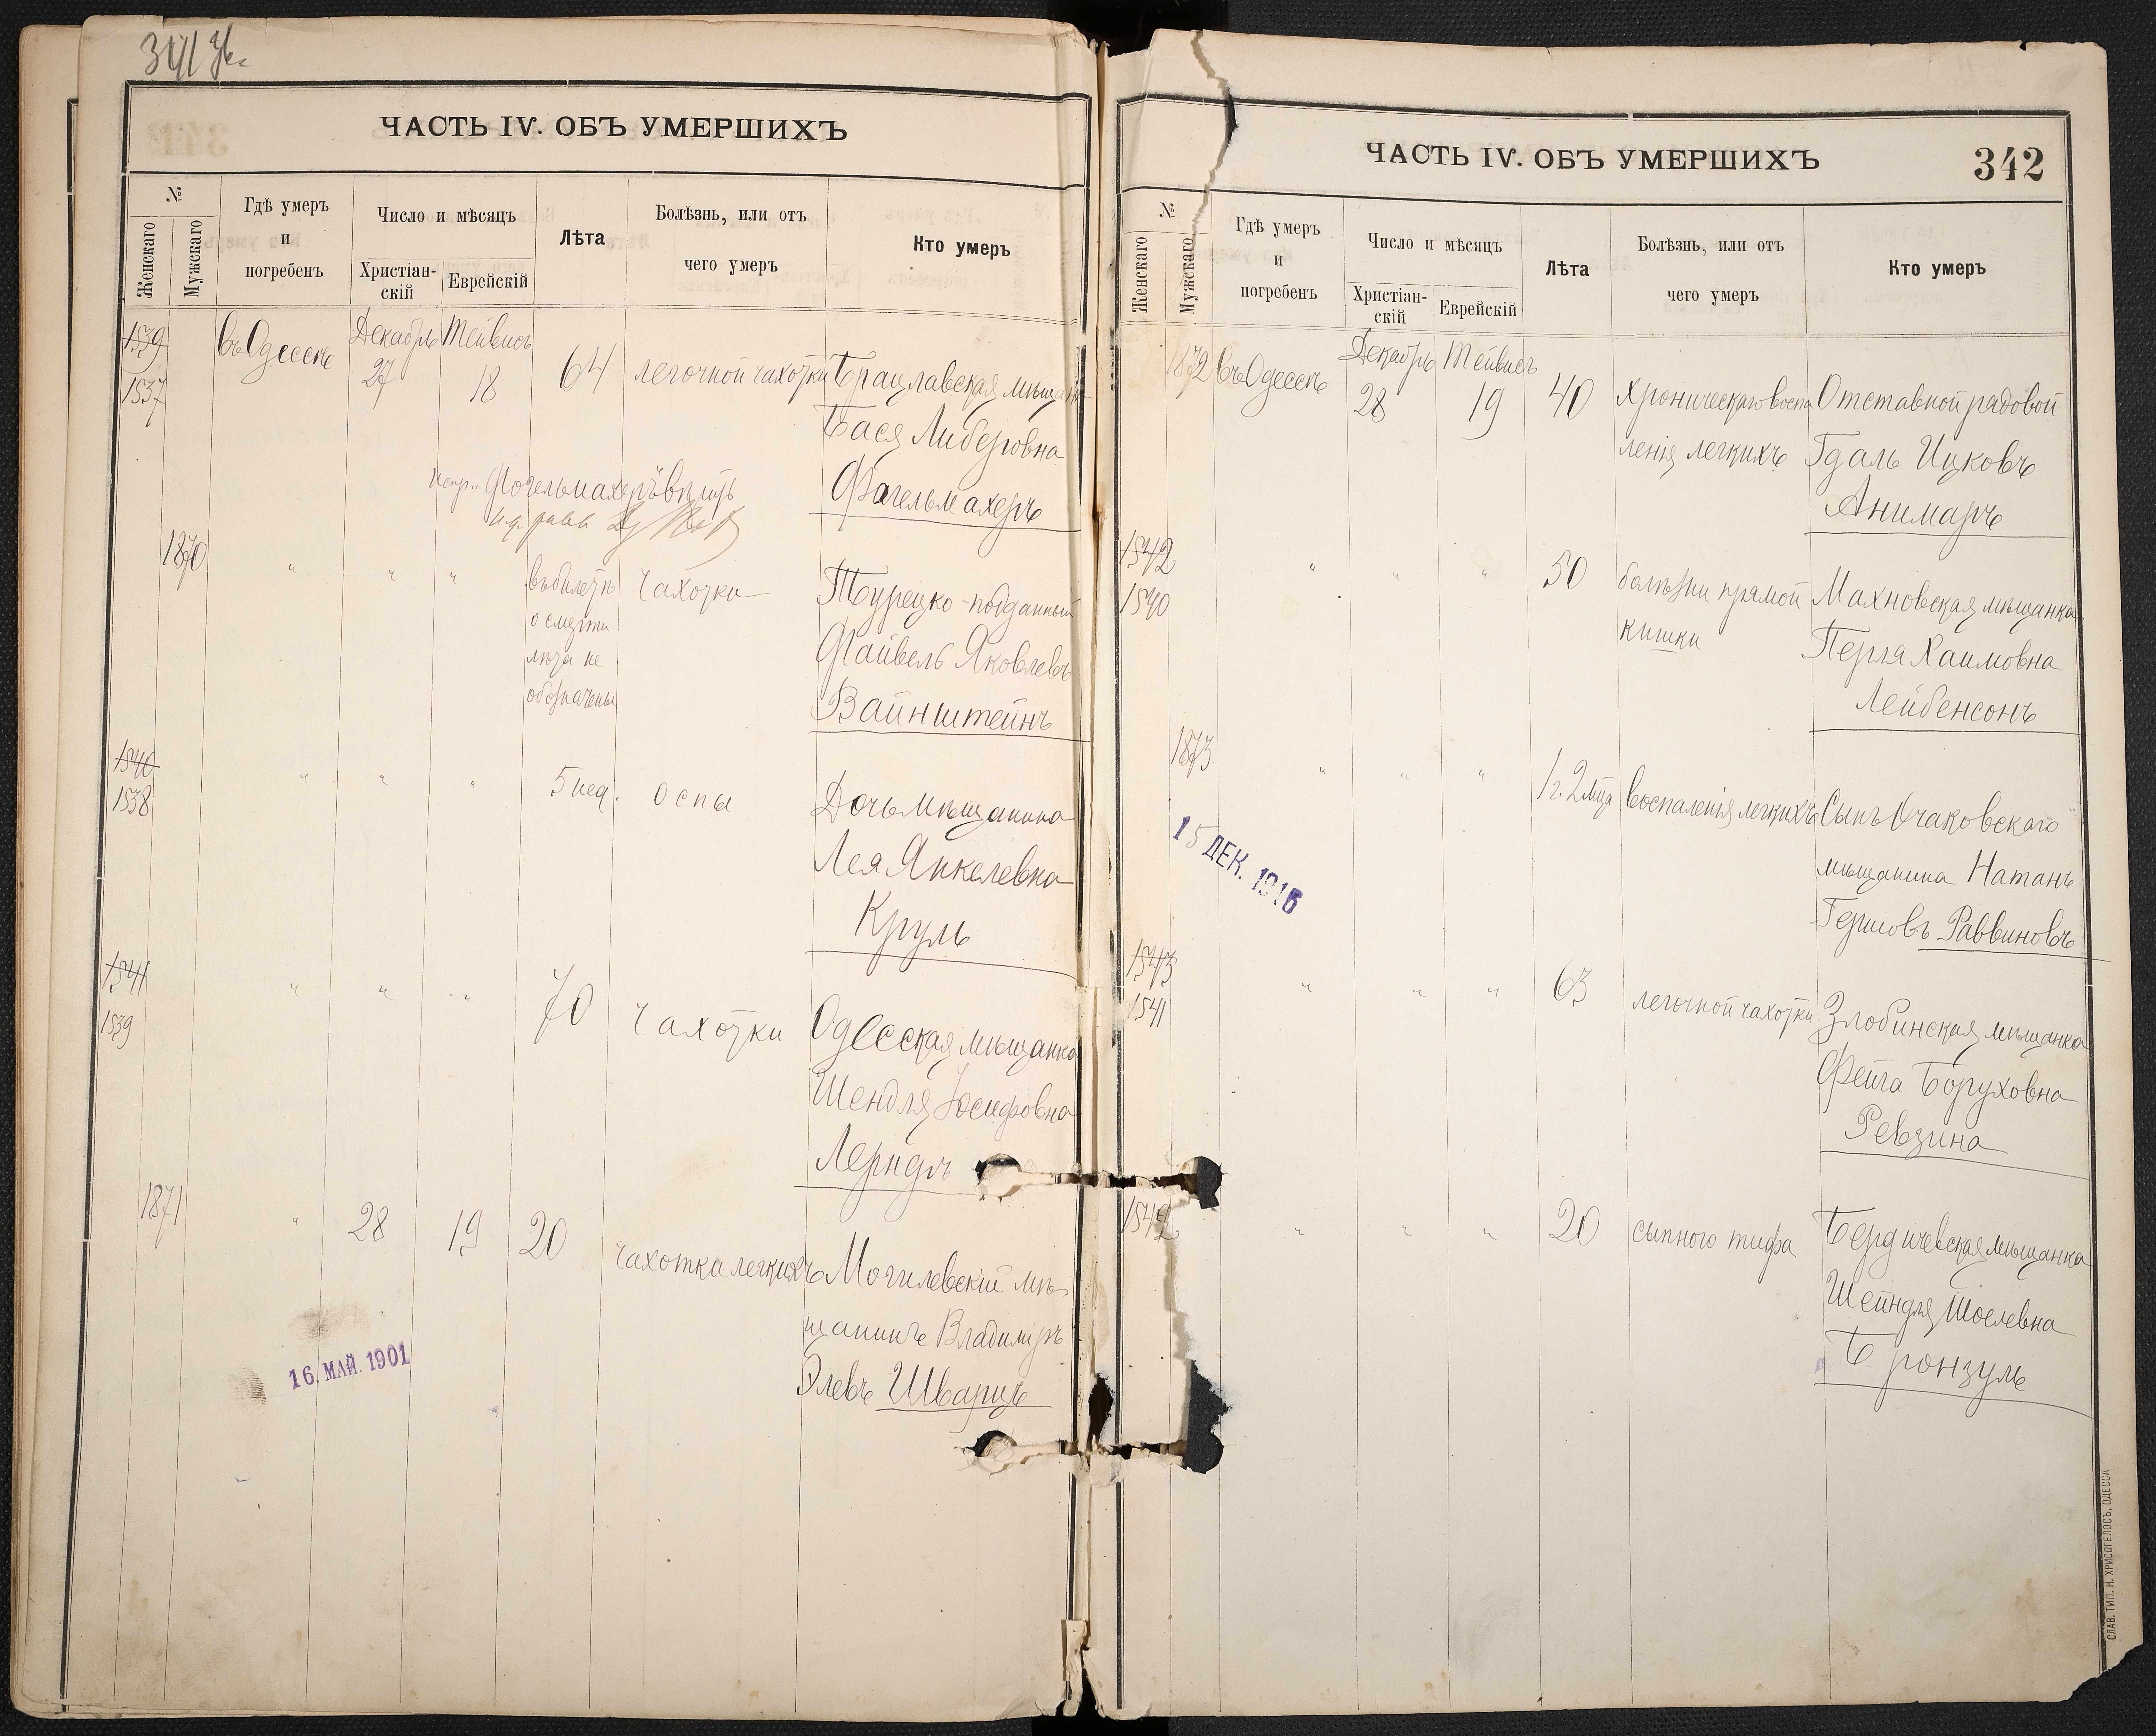 ЧАСТЬ IV. ОБЪ УМЕРШИХЪ
№
Женскаго
Мужскаго
Гдѣ умеръ
и
погребенъ
Число и мѣсяцъ
Христіан-
скій
Еврейскій
Лѣта
Болѣзнь, или отъ
чего умеръ
Кто умеръ
1539
1537
въ Одессѣ
Декабрь
27
Тейвисъ
18
64
легочной чахотки
Брацлавская мѣщанка
Бася Либеровна
Фагельмахеръ
Фогельмахеръ вѣрить
1870
" " "
въ билетѣ
о смерти
лѣта не
обозначены
Чахотки
Турецко-подданный
Файвель Яковлевъ
Вайнштейнъ
1540
1538
" " "
5 нед.
оспы
Дочь мѣщанина
Лея Янкелевна
Кругль
1541
1539
" " "
70
чахотки
Одесская мѣщанка
Шендля Іосифовна
Лерндлъ
1871
"
28
19
20
чахотка легкихъ
Могилевскій мѣ-
щанинъ Владимиръ
Элевъ Шварцъ
16. МАЙ. 1901
ЧАСТЬ IV. ОБЪ УМЕРШИХЪ
342
№
Женскаго
Мужскаго
Гдѣ умеръ
и
погребенъ
Число и мѣсяцъ
Христіан-
скій
Еврейскій
Лѣта
Болѣзнь, или отъ
чего умеръ
Кто умеръ
1872
въ Одессѣ
Декабрь
28
Тейвисъ
19
40
хроническаго воспа
ленія легкихъ
Отставной рядовой
Гдаль Ицковъ
Анимаръ
1542
1540
" " "
50
болѣзни прямой
кишки
Махновская мѣщанка
Перля Хаимовна
Лейбенсонъ
1873
" " "
1 г. 2 мца
воспаленія легкихъ
Сынъ Очаковскаго
мѣщанина Натанъ
Гершовъ Раввиновъ
15 ДЕК. 1916
1543
1541
" " "
63
легочной чахотки
Злобинская мѣщанка
Фейга Боруховна
Ревзина
1542
" " "
20
сыпного тифа
Бердичевская мѣщанка
Шейндля Шоелевна
Бронзуль
СЛАВ. ТИП. Н. ХРИСОГЕЛОСЪ, ОДЕССА